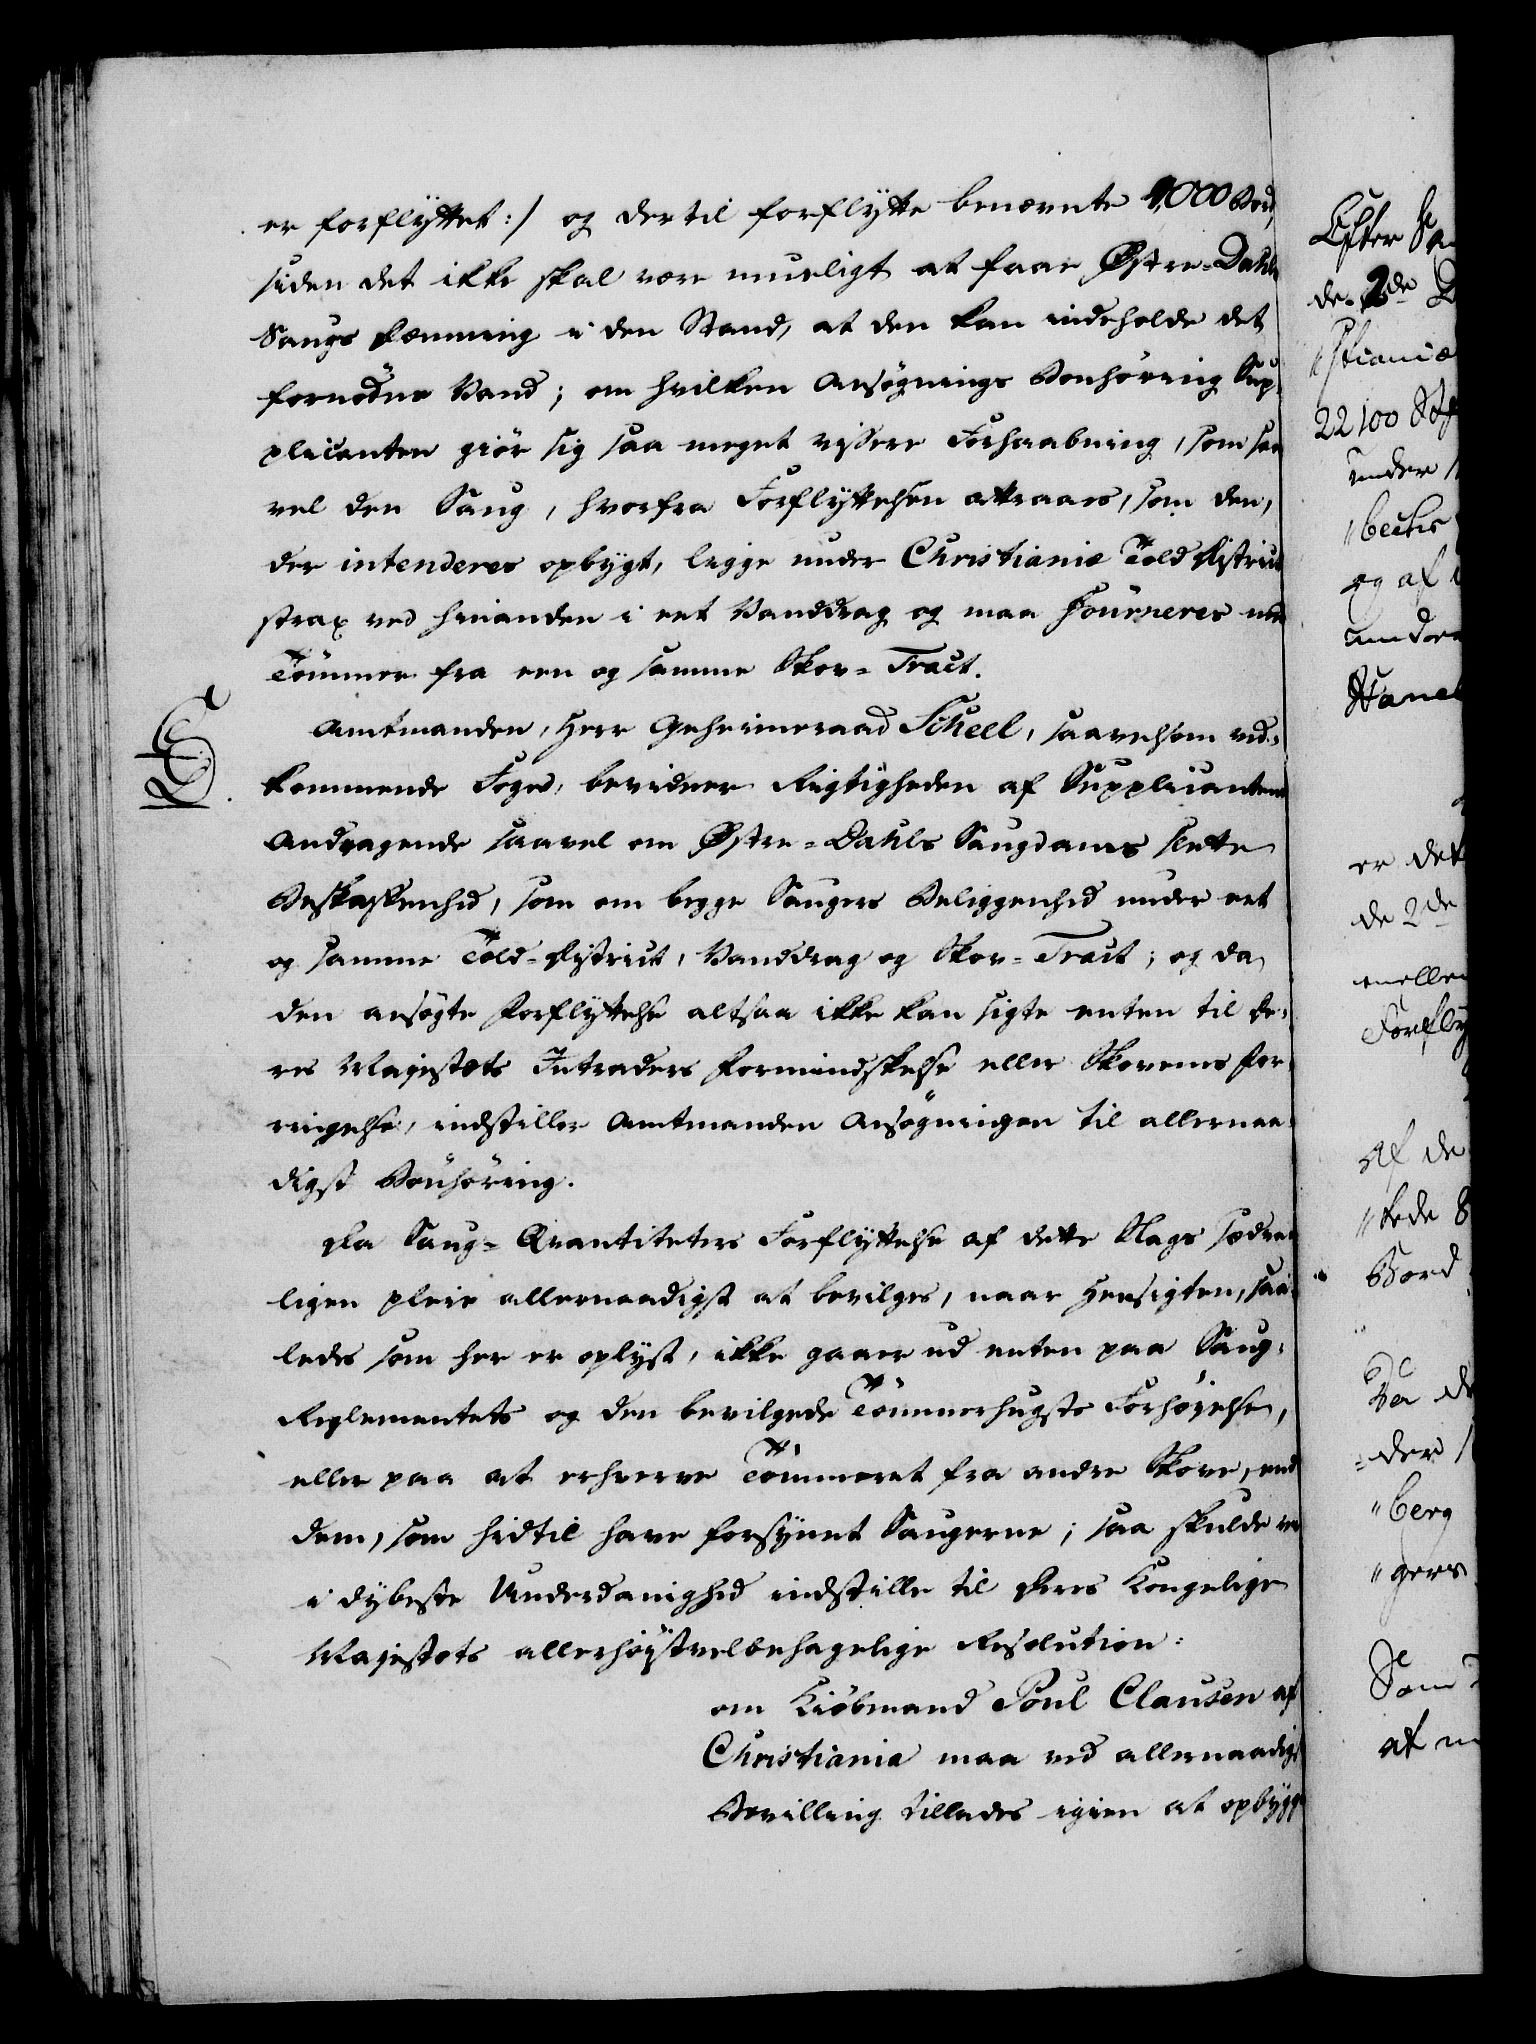 er forflyttet :/ og dertil forflytte benævnte 1000 Bord,
siden det ikke skal være mueligt at faae Østre-Dahls
Saugs Dæmning i den Stand, at den kan indeholde det
fornødne Vand; om hvilken Ansøgnings Bønhøring Sup-
plicanten giør sig saa meget vissere Forhaabning, som saa
vel den Saug, hvorfra Forflyttelsen attraaes, som den,
der intenderes opbygt, ligge under Christianiæ Told District
strax ved hinanden i eet Vanddrag og maa fourneres med
Tømmer fra een og samme Skov-Tract.
Amtmanden, Herr Geheimeraad Scheel, saavelsom ved-
kommende Foged, bevidner Rigtigheden af Supplicantens
Andragende saavel om Østre-Dahls Saugdams slette
Beskaffenhed, som om begge Saugers Beliggenhed under eet
og samme Told-District, Vanddrag og Skov-Tract; og da
den ansøgte Forflyttelse altsaa ikke kan sigte enten til De-
res Majestæts Intraders Formindskelse eller Skovenes For-
ringelse, indstiller Amtmanden Ansøgningen til allernaa-
digst Bønhøring.
Da Saug-Qvantiteters Forflyttelse af dette Slags sædvan-
ligen pleie allernaadigst at bevilges, naar Hensigten, saa-
ledes som her er oplyst, ikke gaaer ud enten paa Saug-
Reglementets og den bevilgede Tømmerhugsts Forhøyelse,
eller paa at erhverve Tømmeret fra andre Skove, end
dem, som hidtil have forsynet Saugerne; saa skulde vi
i dybeste Underdanighed indstille til Deres Kongelige
Majestæts allerhøystvelbehagelige Resolution:
om Kiøbmand Poul Clausen af
Christiania maa ved allernaadigst
Bevilling tillades igien at opbygge
Efter
de 2de
stianiæ
22100
under
bechs
og af
er det
de 2de
mellem
Forfly
Af de
Bord
Da de
der
berg
gers
Som
at